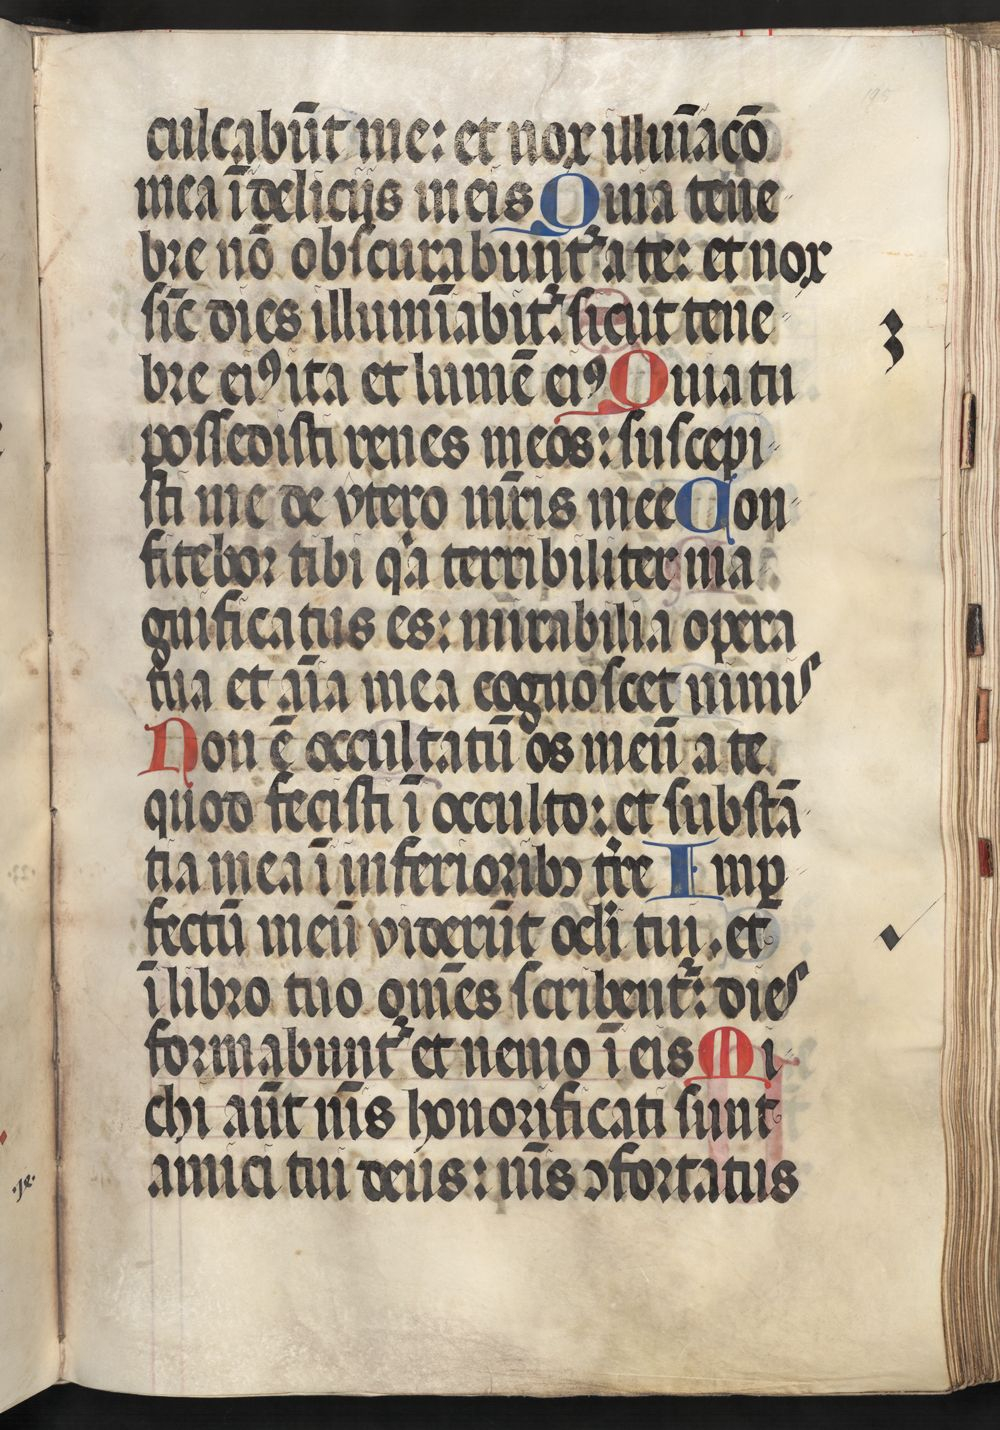 culcabūt me: et nox illumīacō
mea ī delicijs meis Quia tene
bre nō obscurabunt᷑ a te: et nox
sic̄ dies illumīabit᷑: sicut tene
bre eiꝰ ita et lumē eiꝰ Quia tu
possedisti renes meos: suscepi
sti me de vtero mr̄is mee Con
fitebor tibi qꝛa terribiliter ma
gnificatus es: mirabilia opera
tua et aīa mea cognoscet nimis
Non ē occultatū os meū a te
quod fecisti ī occulto: et substā
tia mea ī inferioribꝫ tr̄re Imꝑ
fectū meū viderūt ocl̄i tui, et
ī libro tuo om̄es scribent᷑: dies
formabunt᷑ et nemo ī eis Mi
chi aūt nīs honorificati sunt
amici tui deus: nīs ꝯfortatus
3